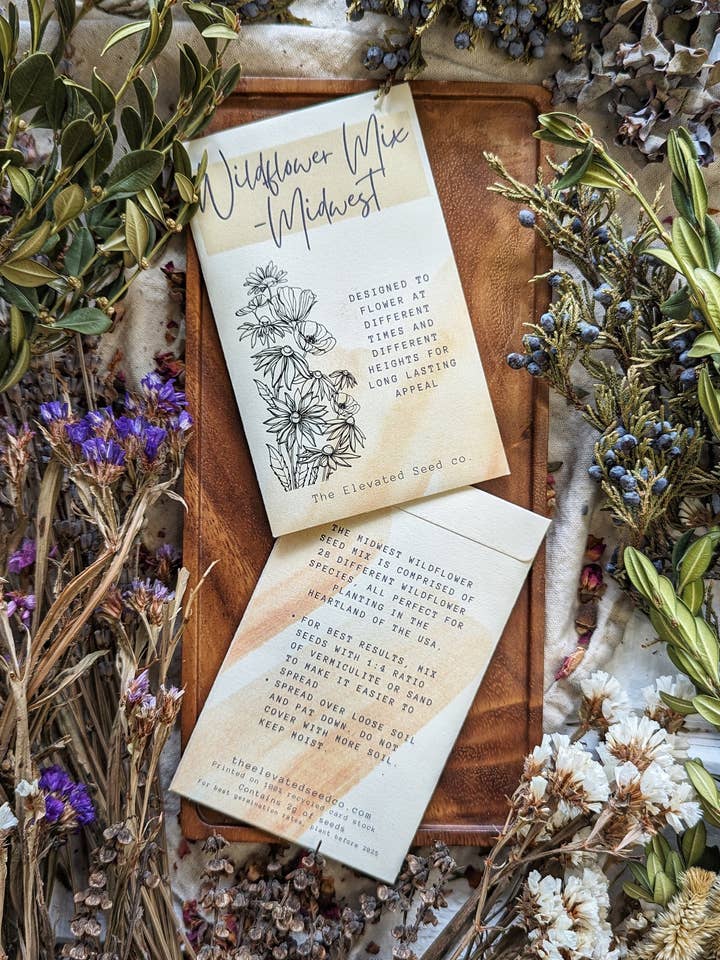 Wildflower Mix
-Midwest
DESIGNED TO
FLOWER AT
DIFFERENT
TIMES AND
DIFFERENT
HEIGHTS FOR
LONG LASTING
APPEAL
The Elevated Seed co.
THE MIDWEST WILDFLOWER
SEED MIX IS COMPRISED OF
28 DIFFERENT WILDFLOWER
SPECIES, ALL PERFECT FOR
PLANTING IN THE
HEARTLAND OF THE USA.
• FOR BEST RESULTS, MIX
SEEDS WITH 1:4 RATIO
OF VERMICULITE OR SAND
TO MAKE IT EASIER TO
SPREAD
• SPREAD OVER LOOSE SOIL
AND PAT DOWN. DO NOT
COVER WITH MORE SOIL.
KEEP MOIST.
theelevatedseedco.com
Printed on 100% recycled card stock
Contains 2g of seeds
For best germination rates, plant before 2025